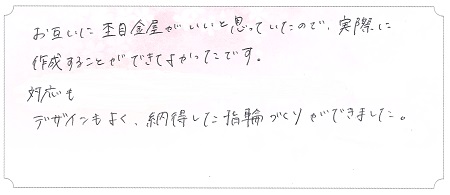 お互いに杢目金屋がいいと思っていたので、実際に
作成することができてよかったです。
対応も
デザインもよく、納得した指輪づくりができました。